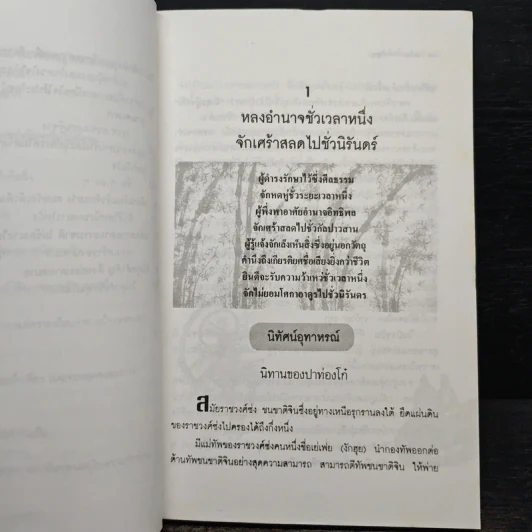 1
หลงอำนาจชั่วเวลาหนึ่ง
จักเศร้าสลดไปชั่วนิรันดร์
ผู้ดำรงรักษาไว้ซึ่งศีลธรรม
จักหดหู่ชั่วระยะเวลาหนึ่ง
ผู้พึ่งพาอาศัยอำนาจอิทธิพล
จักเศร้าสลดไปชั่วกัลปาวสาน
ผู้รู้แจ้งจักเล็งเห็นสิ่งซึ่งอยู่นอกวัตถุ
คำนึงถึงเกียรติยศชื่อเสียงยิ่งกว่าชีวิต
ยินดีจะรับความว้าเหว่ชั่วเวลาหนึ่ง
จักไม่ยอมโศกาอาดูรไปชั่วนิรันดร
นิทัศน์อุทาหรณ์
นิทานของปาท่องโก๋
สมัยราชวงศ์ซ่ง ชนชาติจินซึ่งอยู่ทางเหนือรุกรานลงใต้ ยึดแผ่นดิน
ของราชวงศ์ซ่งไปครองได้ถึงกึ่งหนึ่ง
มีแม่ทัพของราชวงศ์ซ่งคนหนึ่งชื่อเย่เฟย (งักฮุย) นำกองทัพออกต่อ
ต้านทัพชนชาติจินอย่างสุดความสามารถ สามารถตีทัพชนชาติจิน ให้พ่าย